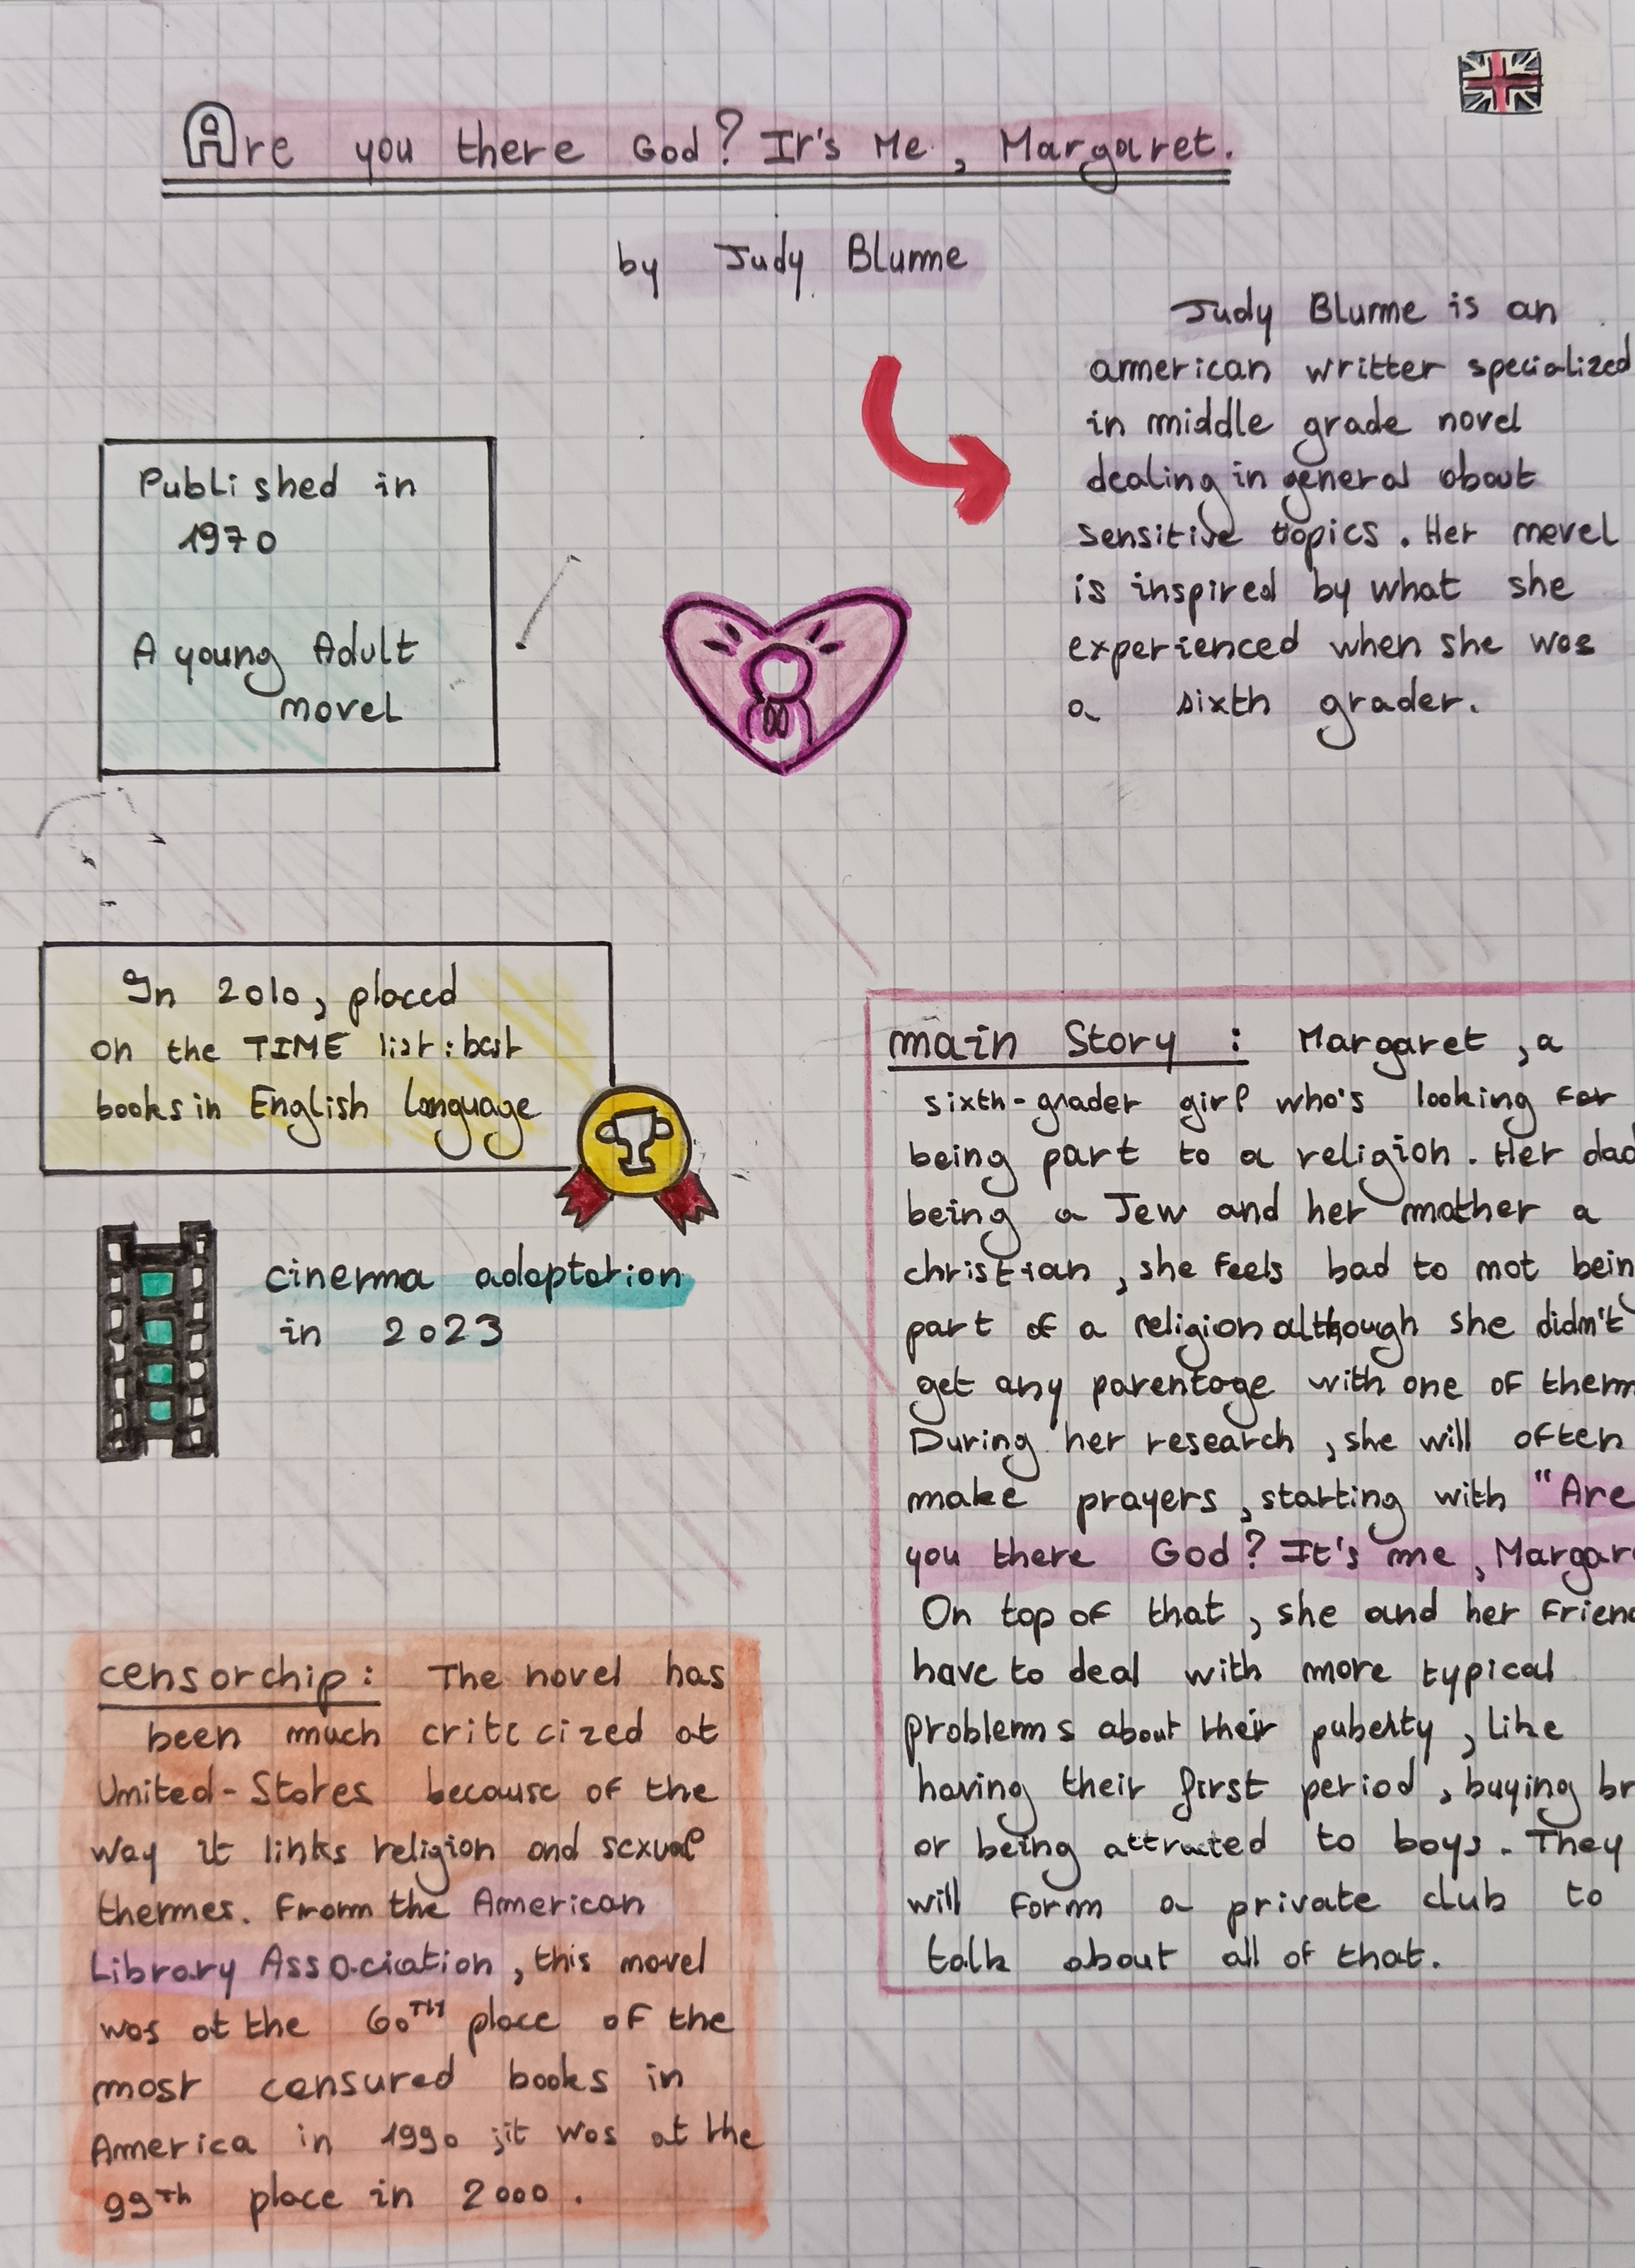 Are you there God? It's Me, Margaret.
by Judy Blume
Judy Blume is an
american writter specialized
in middle grade novel
dealing in general about
sensitive topics. Her novel
is inspired by what she
experienced when she was
a sixth grader.
Published in
1970
A young Adult
novel
In 2010, placed
on the TIME list: best
books in English language
cinema adaptation
in 2023
main Story : Margaret, a
sixth-grader girl who's looking for
being part to a religion. Her dad
being a Jew and her mother a
christian, she feels bad to not being
part of a religion although she didn't
get any parentage with one of them
During her research, she will often
make prayers, starting with "Are
you there God? It's me, Margar
On top of that, she and her Friend
have to deal with more typical
problems about their puberty, like
having their first period, buying br
or being attracted to boys. They
will form a private club to
talk about all of that.
censorchip: The novel has
been much criticized at
United-States because of the
way it links religion and sexual
themes. From the American
Library Association, this novel
was at the 60TH place of the
most censured books in
America in 1990 ; it was at the
99Th place in 2000.